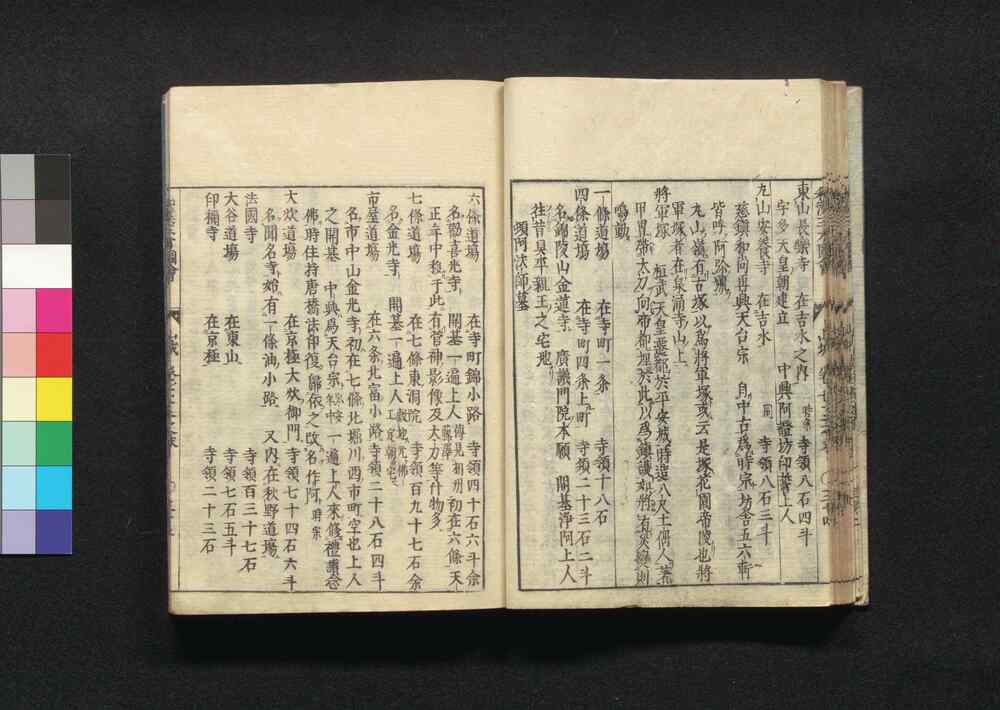 東山長樂寺 在吉水之内 寺領八石四斗
宇多天皇朝建立 中興阿證坊印葉上人
丸山安養寺 在吉水 寺領八石三斗
慈鎮和尚再興天台宗 自中古為時宗坊舎五六軒
皆呼阿弥號
丸山嶺有古塚以為將軍塚或云是塚花園帝陵也將
軍塚者在泉涌寺山上
將軍塚 桓武天皇遷都於平安城時造八尺土偶人著
甲冑帶太刀向帝都埋於此以為鎮護如將有変則
鳴動
一條道場 在寺町一条 寺領十八石
四條道場 在寺町四条上町 寺領二十三石二斗
名錦陵山金蓮寺 廣義門院本願 開基浄阿上人
往昔具平親王之宅地
頓阿法師墓
六條道場 在寺町錦小路 寺領四十石六斗余
名歡喜光寺 開基一遍上人 初在六條 天
正年中移于此有菅神影像及太力等什物多
七條道場 在七條東洞院 寺領百九十七石余
名金光寺 開基一遍上人
市屋道場 在六条北富小路寺領二十八石四斗
名市中山金光寺初在七條北堀川西市町空也上人
之開基 中興為天台宗 一遍上人來修禮讃念
佛時住持唐橋法印復歸依之改名作阿 時宗
大炊道場 在京極大炊御門 寺領七十四石六斗
名聞名寺始有一條油小路 又内在秋野道場
法國寺 寺領百三十七石
大谷道場 在東山 寺領七石五斗
印稱寺 在京極 寺領二十三石